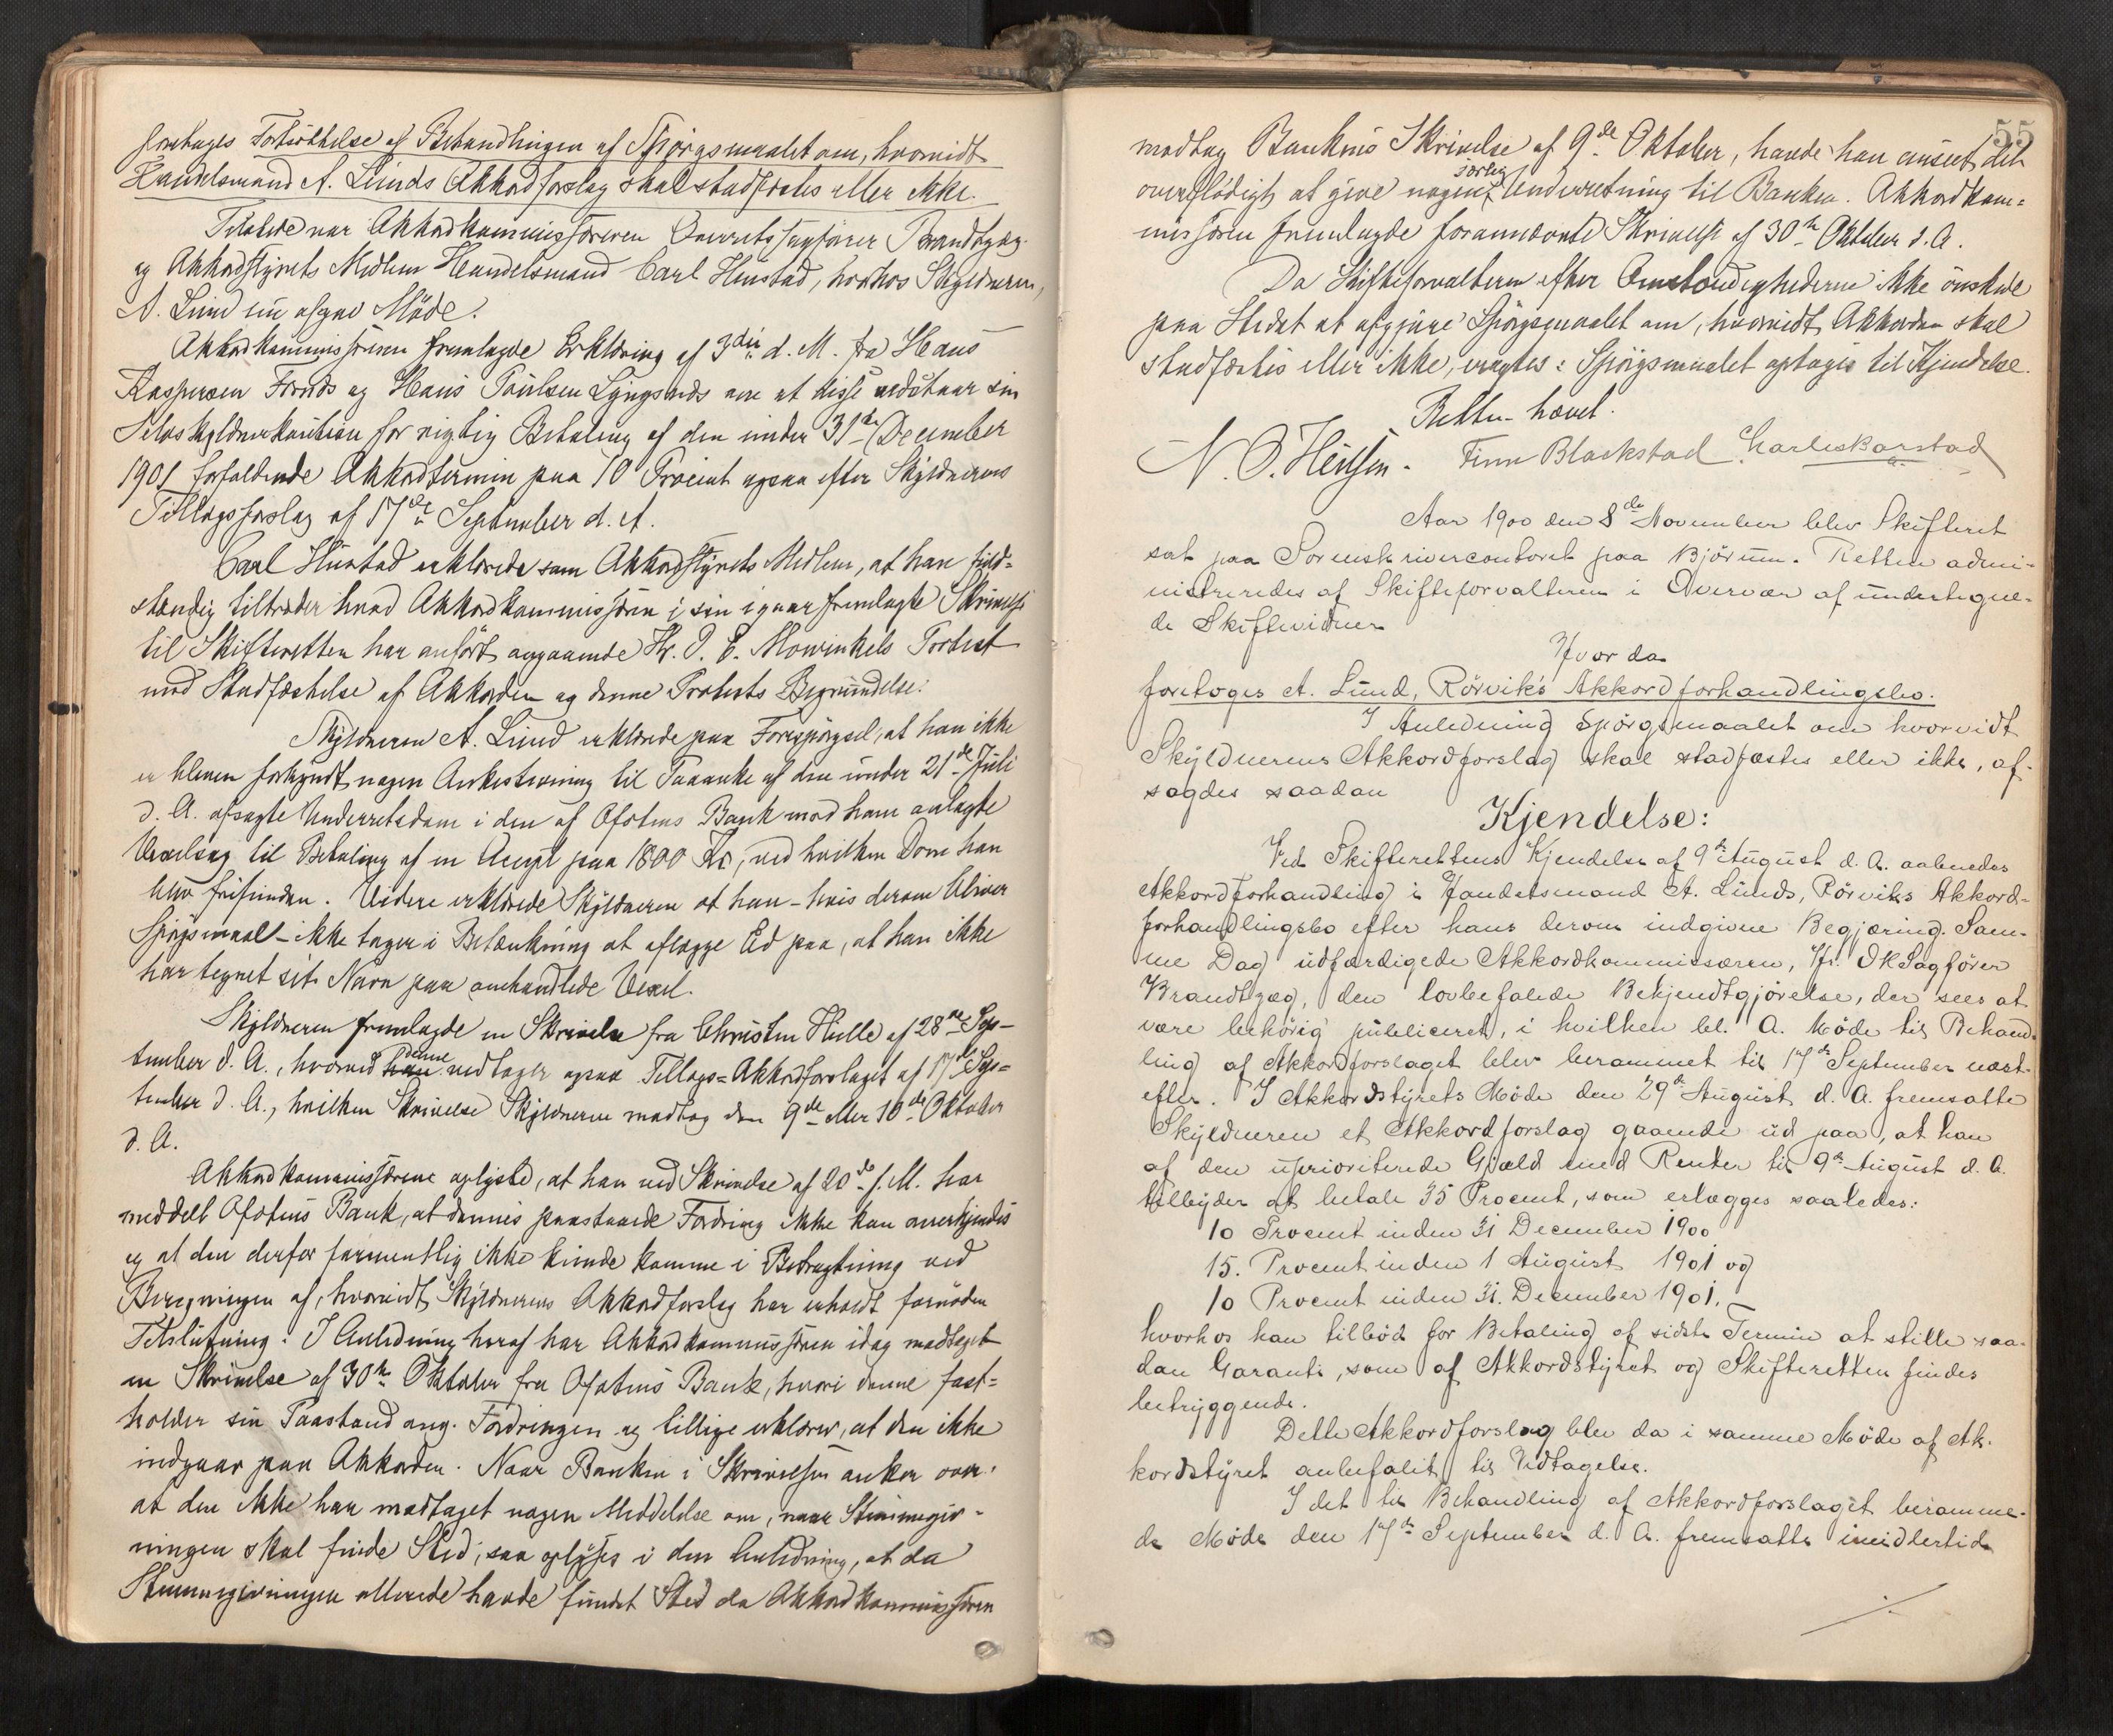 foretages Fortsættelse af Behandlingen af Spörgsmaalet om, hvorvidt
Handelsmand A. Lunds Akkordforslag skal stadfæstes eller ikke.
Tilstede var Akkordkommissæren Overretssagförer Brandtzæg
og Akkordstyrets Medlem Handelsmand Carl Hunstad, hvorhos Skyldneren,
A. Lund nu afgav Möde.
Akkordkommissæren fremlagde Erklæring af 3die d. M. fra Hans
Kaspersen og Hans Paulsen om at disse vedstaar sin
Selvskyldnerkaution for rigtig Betaling af den under 31te December
1901 forfaldende Akkordtermin paa 10 Procent ogsaa efter Skyldnerens
Tillægsforslag af 17de September d. A.
Carl Hunstad erklærede som Akkordstyrets Medlem, at han fuld-
stændig tiltræder hvad Akkordkommissæren i sin igaar fremlagte Skrivelse
til Skifteretten har anfört angaaende Hr. Mowinkels Protest
mod Stadfæstelse af Akkorden og denne Protests Begrundelse.
Skyldneren A. Lund erklærede paa Forespörgsel, at han ikke
er bleven forkyndt nogen Ankestevning til Paaanke af den under 21de Juli
d. A. afsagte Underretsdom i den af Ofotens Bank mod ham anlagte
Vexelsag til Betaling af en Accept paa 1800 Kr, ved hvilken Dom han
blev frifunden. Videre erklærede Skyldneren at han - hvis derom bliver
Spörgsmaal - ikke tager i Betænkning at aflægge Ed paa, at han ikke
har tegnet sit Navn paa omhandlede Vexel.
Skyldneren fremlagde en Skrivelse fra Christen Hulle af 28de Sep-
tember d. A., hvorved han denne vedtager ogsaa Tillægs=Akkordforslaget af 17de Sep=
tember d. A., hvilken Skrivelse Skyldneren modtog den 9de eller 10de Oktober
d. A.
Akkordkommissæren oplyste, at han ved Skrivelse af 20de f. M. har
meddelt Ofotens Bank, at dennes paastaaede Fordring ikke kan anerkjendes
og at den derfor formentlig ikke kunde komme i Betragtning ved
Beregningen af, hvorvidt Skyldnerens Akkordforslag har erholdt fornöden
Tilslutning. I Anledning heraf har Akkordkommissæren idag modtaget
en Skrivelse af 30te Oktober fra Ofotens Bank, hvori denne fast=
holder sin Paastand ang. Fordringen og tillige erklærer, at den ikke
indgaar paa Akkorden. Naar Banken i Skrivelsen anker over,
at den ikke har modtaget nogen Meddelelse om, naar Stemmegiv-
ningen skal finde Sted, saa oplyses i den Anledning, at da
Stemmegivningen allerede havde fundet Sted da Akkordkommissæren
55
modtog Bankens Skrivelse af 9de Oktober, havde han anseet det
overflödigt at give nogen særlig Underretning til Banken. Akkordkom=
missæren fremlagde forannævnte Skrivelse af 30te Oktober d. A.
Da Skifteforvalteren efter Omstændighederne ikke önskede
paa Stedet at afgjöre Spörgsmaalet om, hvorvidt Akkorden skal
stadfæstes eller ikke, eragtes: Spörgsmaalet optages til Kjendelse.
Retten hævet.
Finn Blackstad Charles Karstad
Aar 1900 den 8de November blev Skifteret
sat paa Sorenskrivercontoret paa Björum. Retten admi-
nistreredes af Skifteforvalteren i Overvær af undertegne-
de Skiftevidner
Hvor da
foretoges A. Lund, Rörviks Akkordforhandlingsbo.
I Anledning Spörgsmaalet om hvorvidt
Skyldnerens Akkordforslag skal stadfæstes eller ikke, af-
sagdes saadan
Kjendelse:
Ved Skifterettens Kjendelse af 9de August d. A. aabnedes
Akkordforhandling i Handelsmand A. Lunds, Rörviks Akkord-
forhandlingsbo efter hans derom indgivne Begjæring. Sam-
me Dag udfærdigede Akkordkommissæren, Hr. O R Sagförer
Brandtzæg, den lovbefalede Bekjendtgjörelse, der sees at
være behörig publiceret, i hvilken bl. A. Möde til Behand-
ling af Akkordforslaget blev berammet til 17de September næst-
efter. I Akkordstyrets Möde den 29de August d. A. fremsatte
Skyldneren et Akkordforslag gaaende ud paa, at han
af den uprioriterede Gjæld med Renter til 9de August d. A.
tilbyder at betale 35 Procent, som erlægges saaledes:
10 Procent inden 31 December 1900
15. Procent inden 1 August 1901 og
10 Procent inden 31. December 1901,
hvorhos han tilböd for Betaling af sidste Termin at stille saa-
dan Garanti, som af Akkordstyret og Skifteretten findes
betryggende.
Dette Akkordforslag blev da i samme Möde af Ak-
kordstyret anbefalet til Vedtagelse.
I det til Behandling af Akkordforslaget beramme-
de Möde den 17de September d. A. fremsatte imidlertid